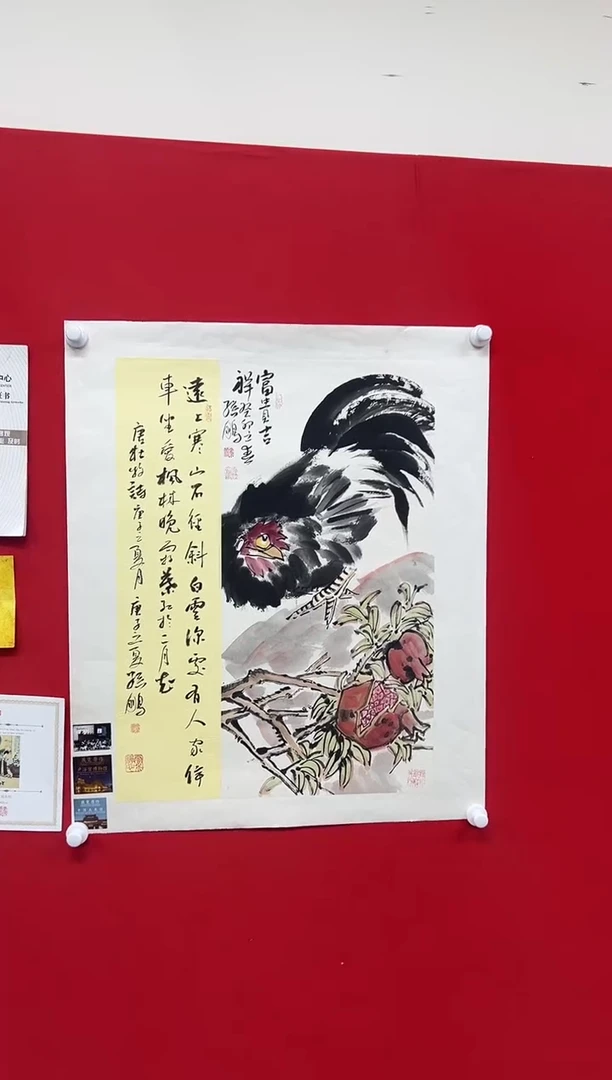 富貴吉
祥癸卯之春
孫鵬
遠上寒山石径斜白雲深處有人家停
車坐愛楓林晚霜葉紅於二月花
唐杜牧詩庚子之夏月 庚子之夏孫鵬
中心
证书